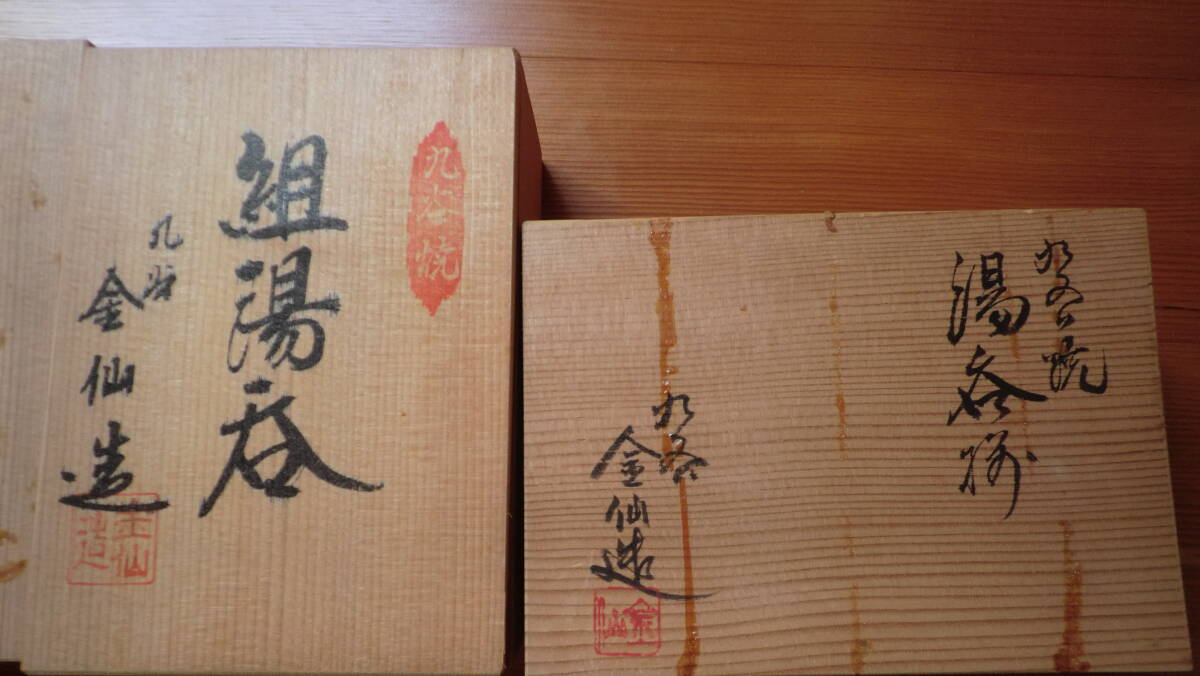 九谷焼
組湯呑
九谷
金仙造
金仙
造
九谷焼
湯呑揃
九谷
金仙造
金
仙